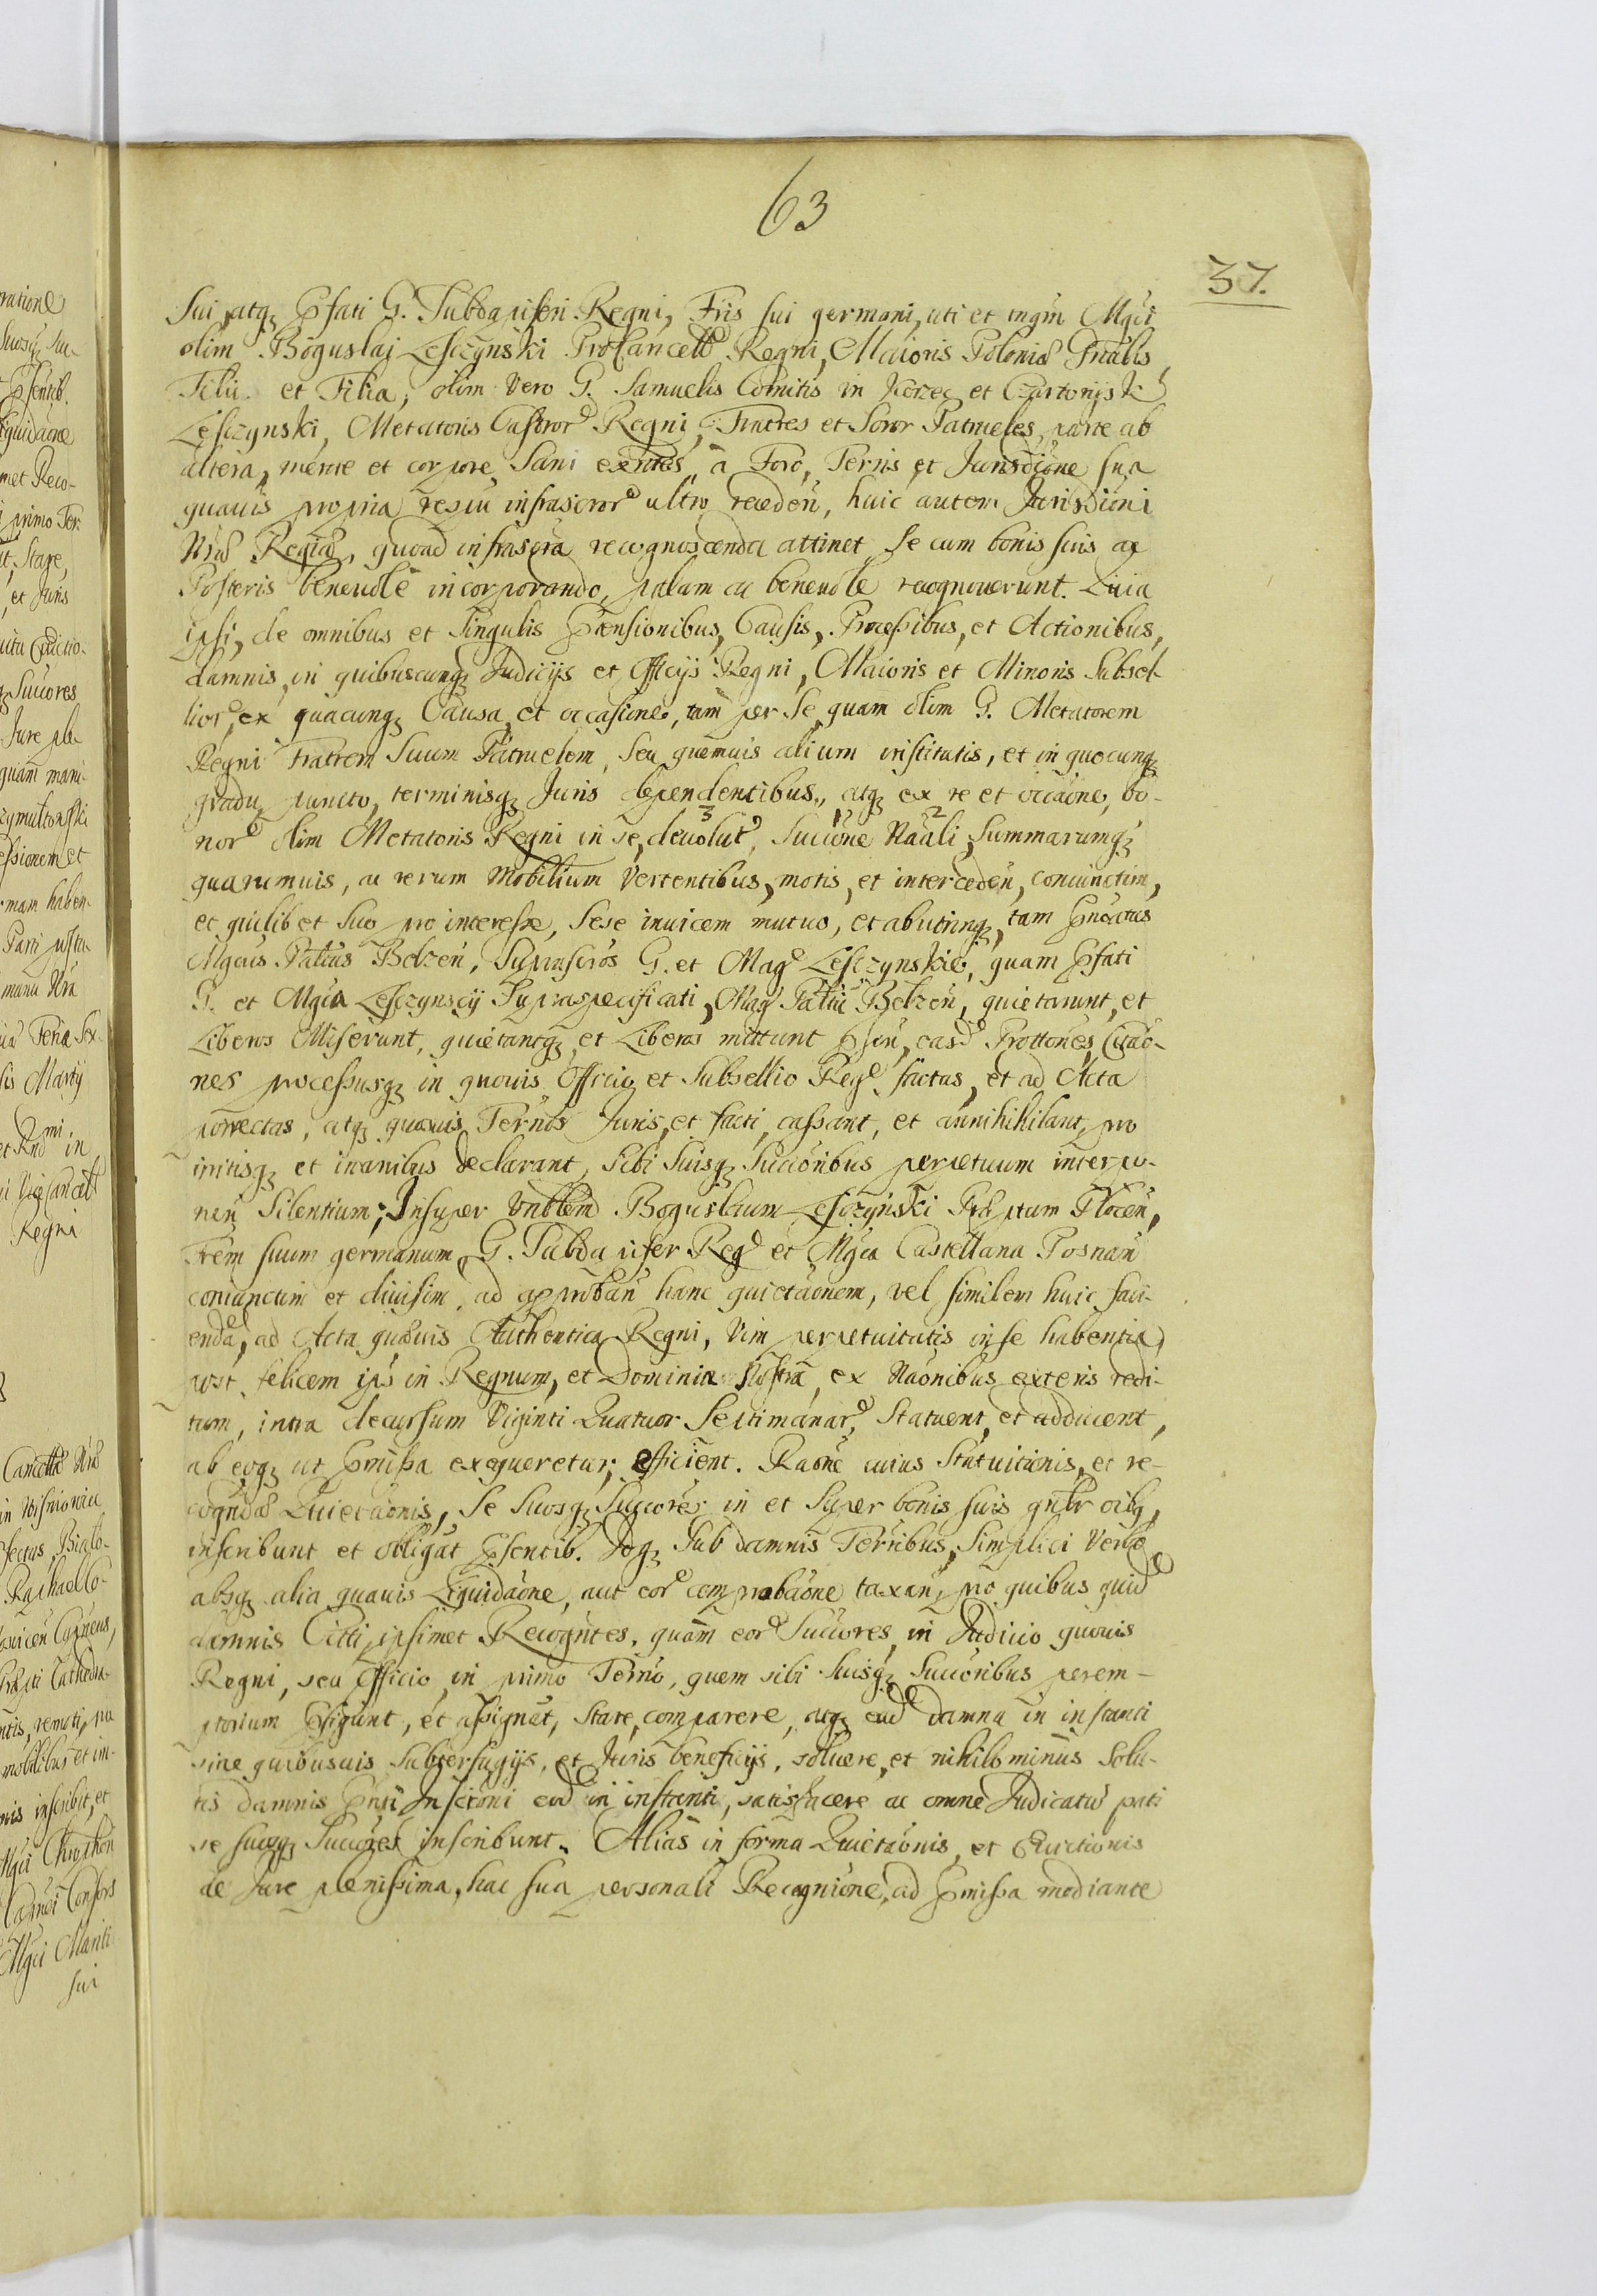 63
37.
sui, atq₃ Pfati G. Subdapiferi Regni, Fris sui germani, uti et mgni Mgci
olim Boguslaj Lesczynski ProCancell. Regni, Maioris Poloniæ Gnalis
Filii et Filia, olim Vero G. Samuelis Comitis in Korzec et Czartoryisk
Lesczynski, Metatoris Castror. Regni, Fratres et Soror Patrueles, parte ab
altera, mente et corpore Sani exntes, à Foro, Ternis et Jurisdione sua
quavis propria respu infrascror. ultro receden, huic autem Jurisdioni
Nræ Regiæ, quoad infrascra recognoscenda attinet se cum bonis suis ac
Posteris benevole incorporando, palam ac benevole recognoverunt. Quia
ipsi, de omnibus et Singulis Pænsionibus, Causis, Processibus, et Actionibus,
damnis, in quibuscunq₃ Judicijs et Officijs Regni, Maioris et Minoris Subsel-
lior. ex quacunq₃ Causa et occasione, tam per se quam olim G. Metatorem
Regni Fratrem Suum Patruelem, seu quemuis alium institutis, et in quocunq₃
gradu puncto, terminisq₃ Juris dependentibus, atq₃ ex re et occaone, bo-
nor. olim Metatoris Regni in se, devolut. Succone Naali, Summarumq₃
quarumuis, ac rerum Mobilium Vertentibus, motis, et interceden, coniunctim,
et quilibet suo pro interesse, sese inuicem mutuo, et abutrinq₃, tam Pnoatus
Mgcus Palnus Belzen, Suprascros G. et Mag. Lesczynskie, quam Pfati
G. et Mgca Lesczynscij Supraspecificati, Mag. Palni Belzen, quietarunt, et
Liberos Miserunt, quietantq₃ et Liberos mittunt Psen, easd. Prottones, Citao-
nes processusq₃ in quouis Officio et Subsellio Reg. factas, et ad Acta
porrectas, atq₃ quovis Ternos Juris et facti, cassant, et annihihilant, pro
irritisq₃ et inanibus declarant, sibi Suisq₃ Succoribus perpetuum interpo-
nen Silentium; Insuper Vnblem Boguslaum Lesczynski Præptum Plocen,
Frem suum germanum, G. Subdapifer Reg. et Mgca Castellana Posnan
coniunctim et diuisim, ad approban hanc quietaonem, vel similem huic faci-
enda, ad Acta quævis Authentica Regni, Vim perpetuitatis in se habentia,
post felicem ips in Regnum, et Dominia Nostra, ex Naonibus exteris redi-
tum, intra decursum Viginti Quatuor Septimanar. Statuent, et adducent,
ab eoq₃ ut Pmissa exequeretur, efficient. Raone cuius Statuitionis, et re-
cogndæ Quietaonis, Se Suosq₃ Succores in et Super bonis suis gnlr oibq₃
inscribunt et obligat Psentib. Idq₃ Sub damnis Terribus, Simplici Verbo
absq₃ alia quauis Liquidaone, aut eor. comprobaone taxan, pro quibus quid.
damnis Citti, ipsimet Recogntes, quam eor. Succores, in Judicio quouis
Regni, seu Officio, in primo Terno, quem sibi Suisq₃ Succoribus perem-
ptorium Pfigunt, et assignat, Stare, comparere, atq₃ ead. damna in instanti
sine quibusuis Subterfugijs, et Juris beneficijs, soluere, et nihilominus Solu-
tis damnis Pnti Inscroni eod. in instanti, satisfacere ac omne Judicatu pati
se suosq₃ Succores inscribunt. Alias in forma Quietaonis, et Evictionis
de Jure plenissima, hac sua personali Recognione, ad Pmissa mediante